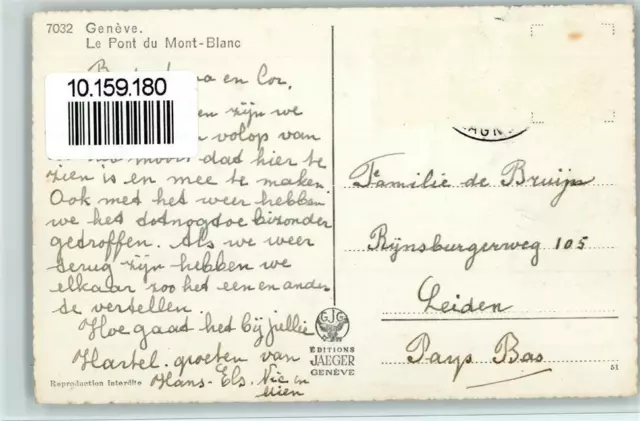 7032 Genève.
Le Pont du Mont-Blanc
en Cor.
10.159.180
zijn we
volop van
moois dat hier te
zien is en mee te maken.
Ook met het weer hebben
we het totnogtoe bizonder
getroffen. Als we weer
terug zijn hebben we
elkaar zoo het een en ander
te vertellen.
Hoe gaat het bij jullie
Hartel. groeten van
Hans- Els. Nic en
Mien
Reproduction interdite
GJG
EDITIONS
JAEGER
GENÈVE
Familie de Bruijn
Rijnsburgerweg 105
Leiden
Pays Bas
51